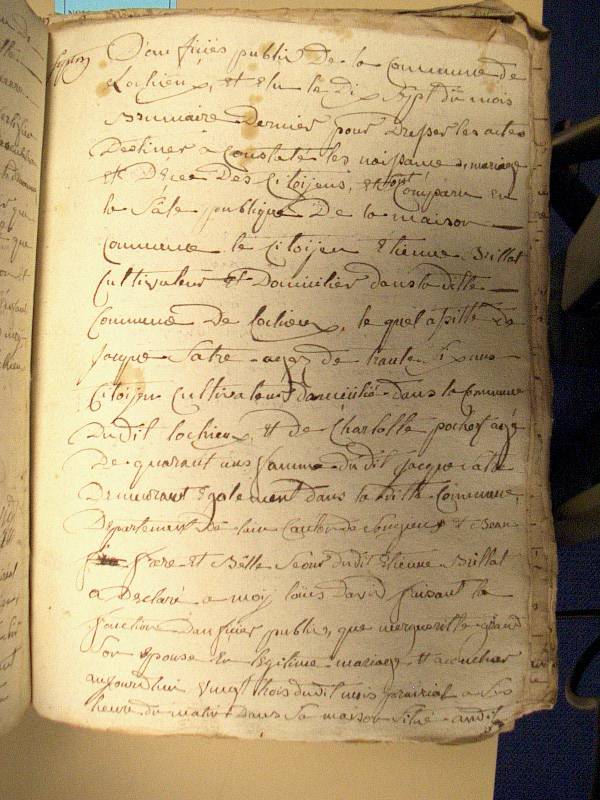 D'an fisiés public De la Commune de
Lochieux, Et Elu le Dix Sept du mois
Brumaire Dernier pour Dresser les actes
Destiner a Constaté les naissance, mariage
Et Décée Des Citoijens, Et sont Comparu en
la Sâle publique De la maison
Commune le Citoijen Etienne Brillat
Cultivateur Et Domicilier dans la ditte
Commune De Lochieux, le quel assisté de
Jacque Satre agez de trante six ans
Citoijen Cultivateur domicilié dans la Commune
Du dit lochieux, Et de Charlotte pochet agé
De quarant ans famme du dit Jacque Satre
Demeurant Egalement dans la ditte Commune,
Département De lain Canton de Songieux Et Bean
frere Et Bélle Seour du dit Etienne Brillat
a Déclaré a moij loüis David faisant la
fonction Dan fisiés public, que mergueritte grand
Son Epouse En légitime mariage Et acouchér
aujourdhui vingt trois du dit mois prairial a Six
heure du matin Dans Sa maison Situé audit